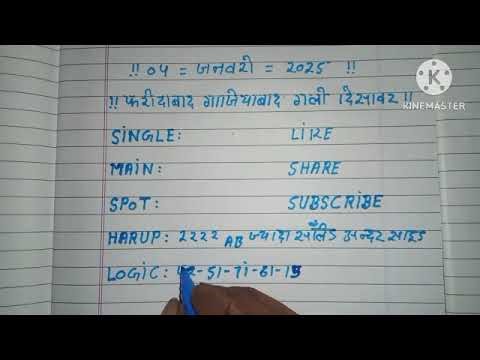 !! 04 = जनवरी = 2025 !!
KINEMASTER
!! फरीदाबाद गाजियाबाद गली दिसावर !!
SINGLE: LIKE
MAIN: SHARE
SPOT: SUBSCRIBE
HARUP: 2222 AB ज्यादा सॉलिड अन्दर साइड
LOGIC: -51-71-61-15